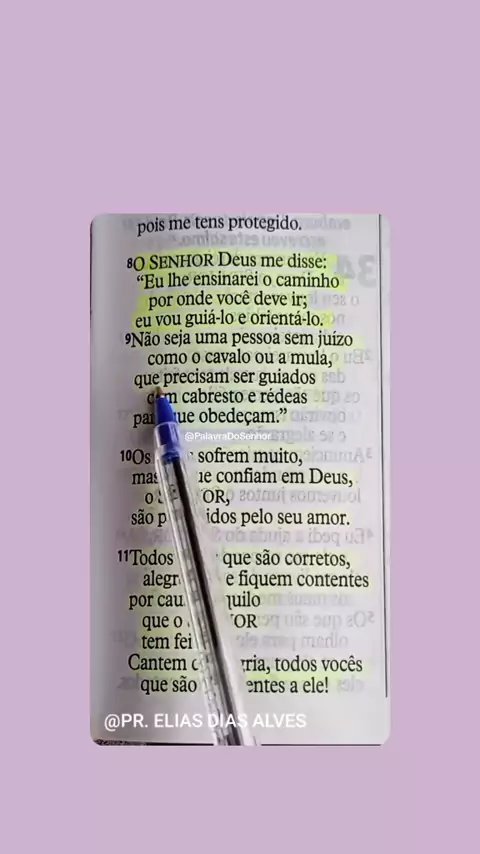 pois me tens protegido.
8O SENHOR Deus me disse:
“Eu lhe ensinarei o caminho
por onde você deve ir;
eu vou guiá-lo e orientá-lo.
9Não seja uma pessoa sem juízo
como o cavalo ou a mula,
que precisam ser guiados
cabresto e rédeas
que obedeçam.”
@PalavraDoSenhor
10Os sofrem muito,
confiam em Deus,
o
são pelo seu amor.
11Todos que são corretos,
e fiquem contentes
por
que o
tem
Cantem todos vocês
que são a ele!
@PR. ELIAS DIAS ALVES